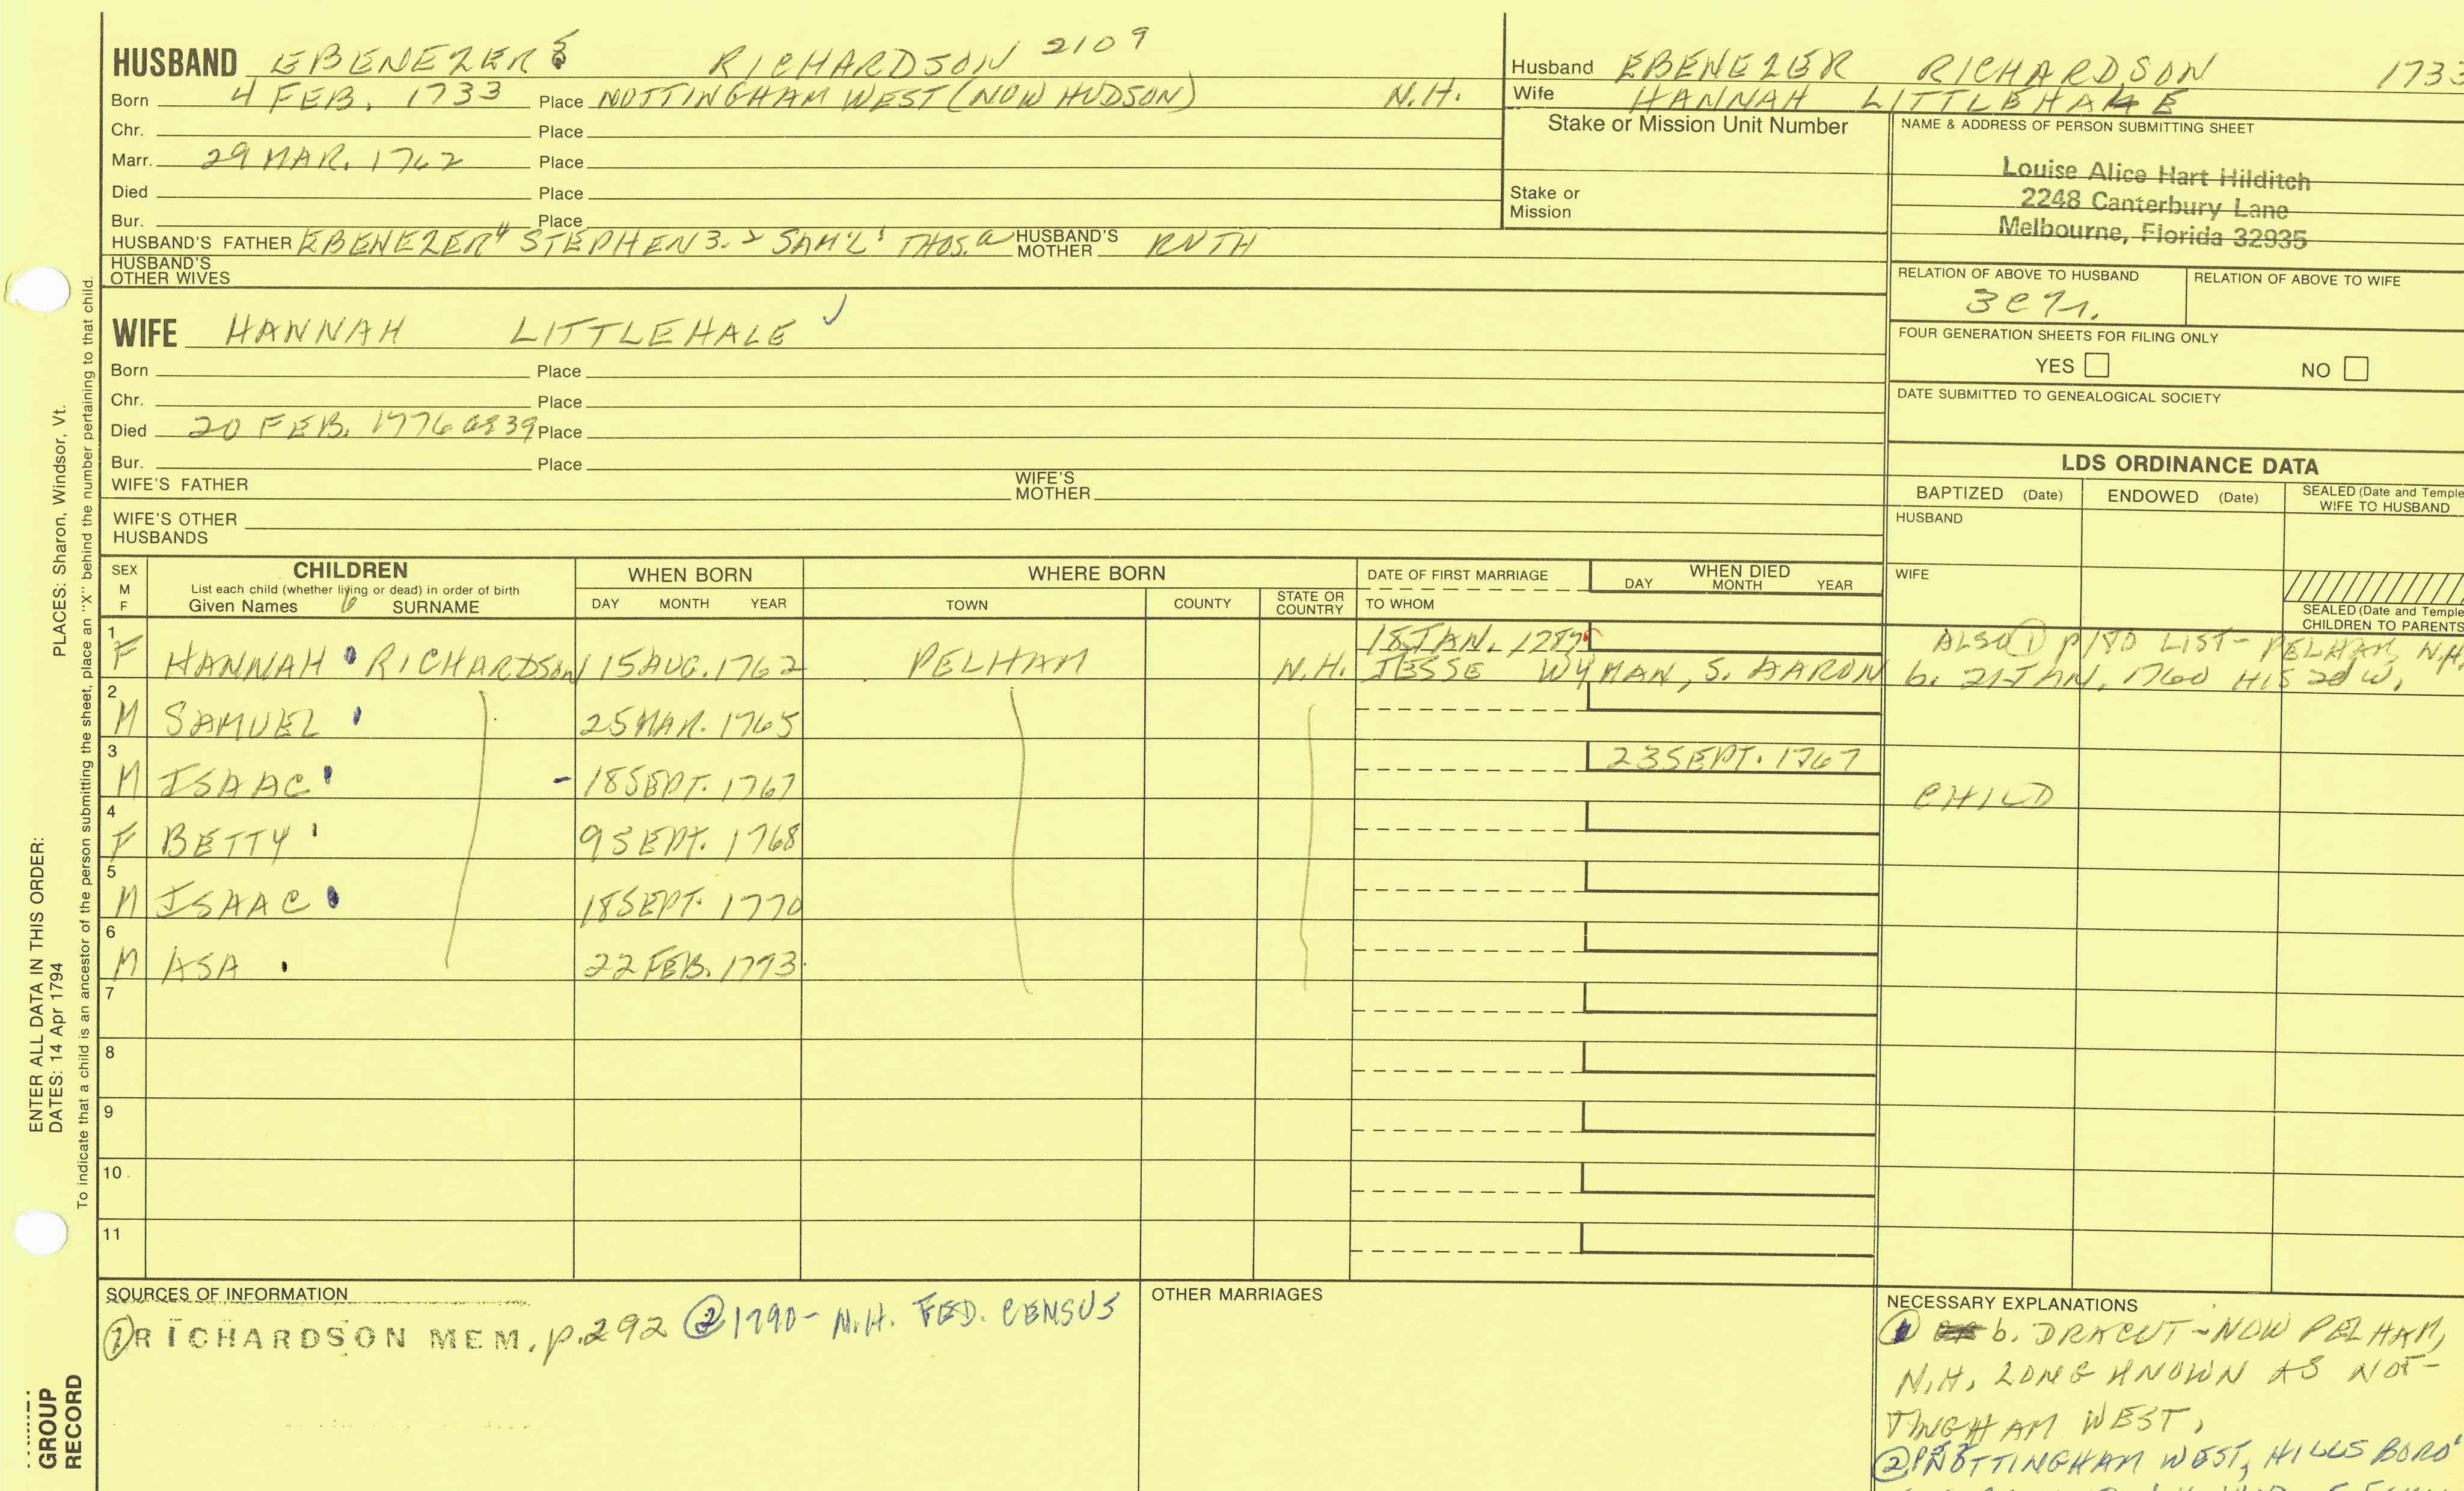 HUSBAND EBENEZER RICHARDSON 2109
Born 4 FEB. 1733 Place NOTTINGHAM WEST (NOW HUDSON) N.H.
Chr. Place
Marr. 29 MAR. 1762 Place
Died Place
Bur. Place
HUSBAND'S FATHER EBENEZER4 STEPHEN3. 2 SAM'L1 THOS.a HUSBAND'S MOTHER RUTH
HUSBAND'S OTHER WIVES
Husband EBENEZER RICHARDSON 1733
Wife HANNAH LITTLEHALE
Stake or Mission Unit Number
Stake or Mission
NAME & ADDRESS OF PERSON SUBMITTING SHEET
Louise Alice Hart Hilditch
2248 Canterbury Lane
Melbourne, Florida 32935
RELATION OF ABOVE TO HUSBAND RELATION OF ABOVE TO WIFE
FOUR GENERATION SHEETS FOR FILING ONLY
YES NO
DATE SUBMITTED TO GENEALOGICAL SOCIETY
WIFE HANNAH LITTLEHALE
Born Place
Chr. Place
Died 20 FEB. 1776 ae39 Place
Bur. Place
WIFE'S FATHER WIFE'S MOTHER
WIFE'S OTHER HUSBANDS
LDS ORDINANCE DATA
BAPTIZED (Date) ENDOWED (Date) SEALED (Date and Temple
WIFE TO HUSBAND
HUSBAND
WIFE
SEALED (Date and Temple
CHILDREN TO PARENTS
SEX M F
CHILDREN
List each child (whether living or dead) in order of birth
Given Names 6 SURNAME
WHEN BORN
DAY MONTH YEAR
WHERE BORN
TOWN COUNTY STATE OR COUNTRY
DATE OF FIRST MARRIAGE
TO WHOM
WHEN DIED
DAY MONTH YEAR
18 JAN. ALSO 1 P/80 LIST - PELHAM, N.H.
1 F HANNAH RICHARDSON 15 AUG. 1762 PELHAM N.H. JESSE WYMAN, S. AARON b. 21 JAN. 1760 HIS 2d W.
2 M SAMUEL 25 MAR. 1765
3 M ISAAC - 18 SEPT. 1767 23 SEPT. 1767 CHILD
4 F BETTY 9 SEPT. 1768
5 M ISAAC 18 SEPT. 1770
6 M ASA 22 FEB. 1773
7
8
9
10
11
SOURCES OF INFORMATION
1 RICHARDSON MEM. p.292 2 1790 - N.H. FED. CENSUS
OTHER MARRIAGES
NECESSARY EXPLANATIONS
1 b. DRACUT - NOW PELHAM,
N.H. LONG KNOWN AS NOT-
TINGHAM WEST.
2 NOTTINGHAM WEST, HILLSBORO'
ENTER ALL DATA IN THIS ORDER:
PLACES: Sharon, Windsor, Vt.
DATES: 14 Apr 1794
To indicate that a child is an ancestor of the person submitting the sheet, place an "X" behind the number pertaining to that child.
GROUP
RECORD